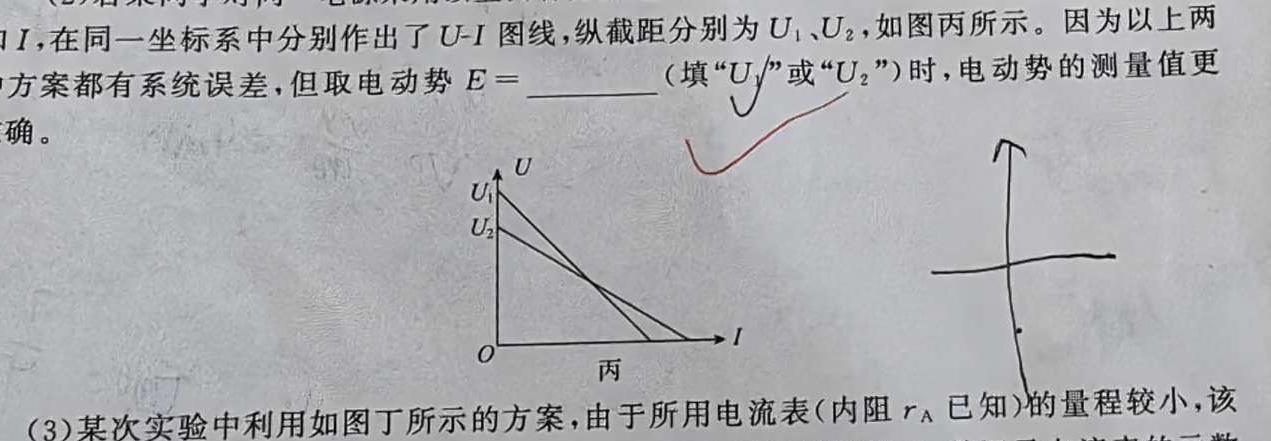 I,在同一坐标系中分别作出了U-I图线,纵截距分别为U₁、U₂,如图丙所示。因为以上两
方案都有系统误差,但取电动势E=______(填“U₁”或“U₂”)时,电动势的测量值更
确。
U
U₁
U₂
O
I
丙
(3)某次实验中利用如图丁所示的方案,由于所用电流表(内阻r_A已知)的量程较小,该